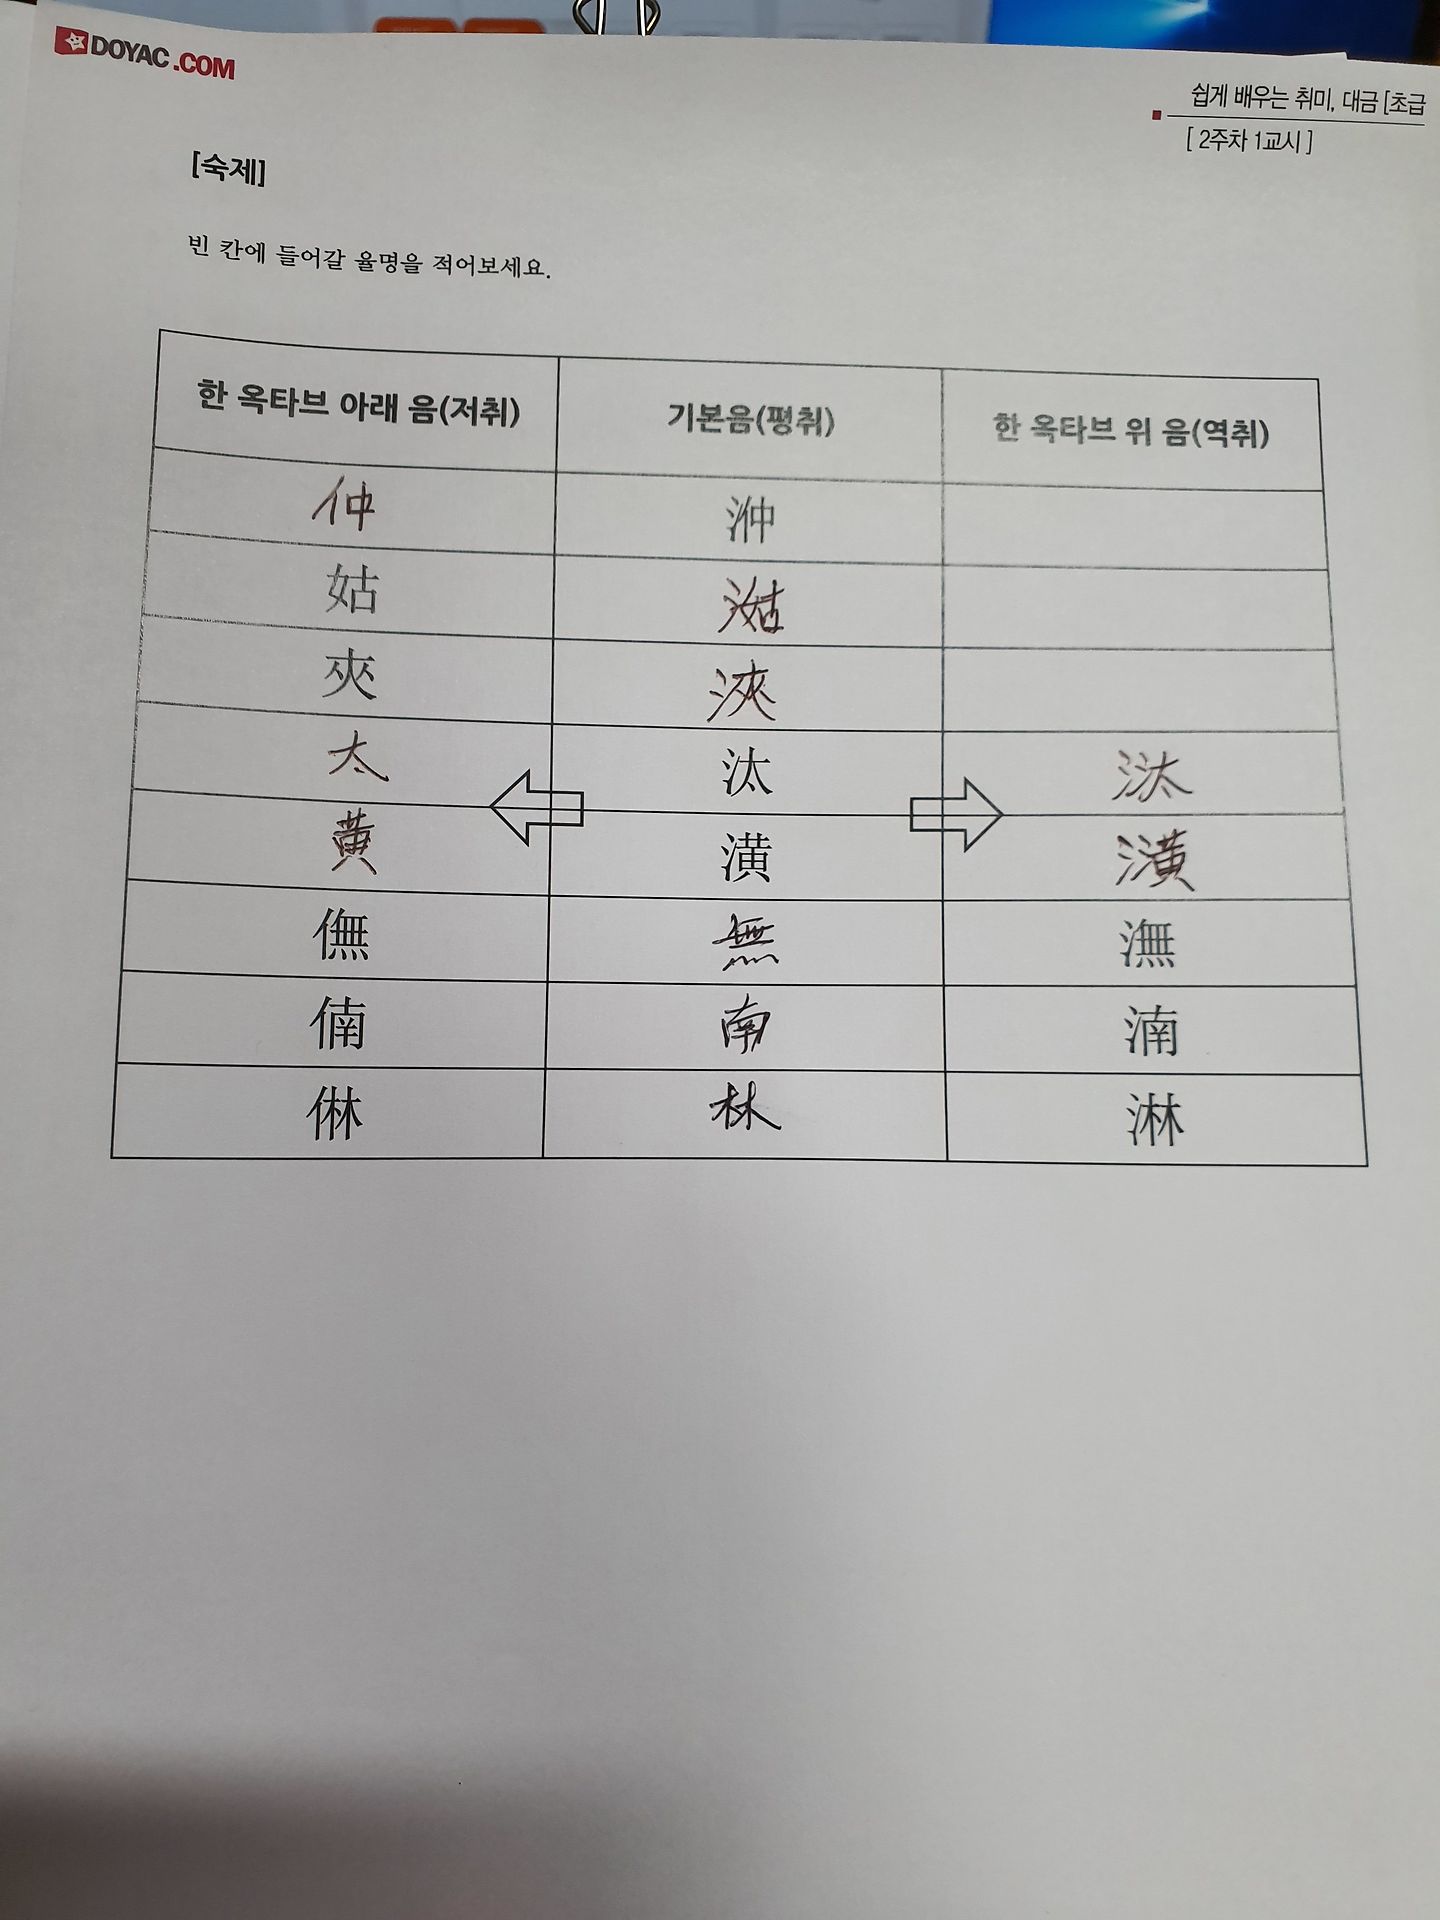 DOYAC.COM
쉽게 배우는 취미, 대금 [초급
[ 2주차 1교시 ]
[숙제]
빈 칸에 들어갈 율명을 적어보세요.
한 옥타브 아래 음(저취) 기본음(평취) 한 옥타브 위 음(역취)
仲 㳞
姑 㴌
夾 浹
太 汰 㳲
黃 潢 㶂
僫 無 潕
㑲 南 湳
㑣 林 淋